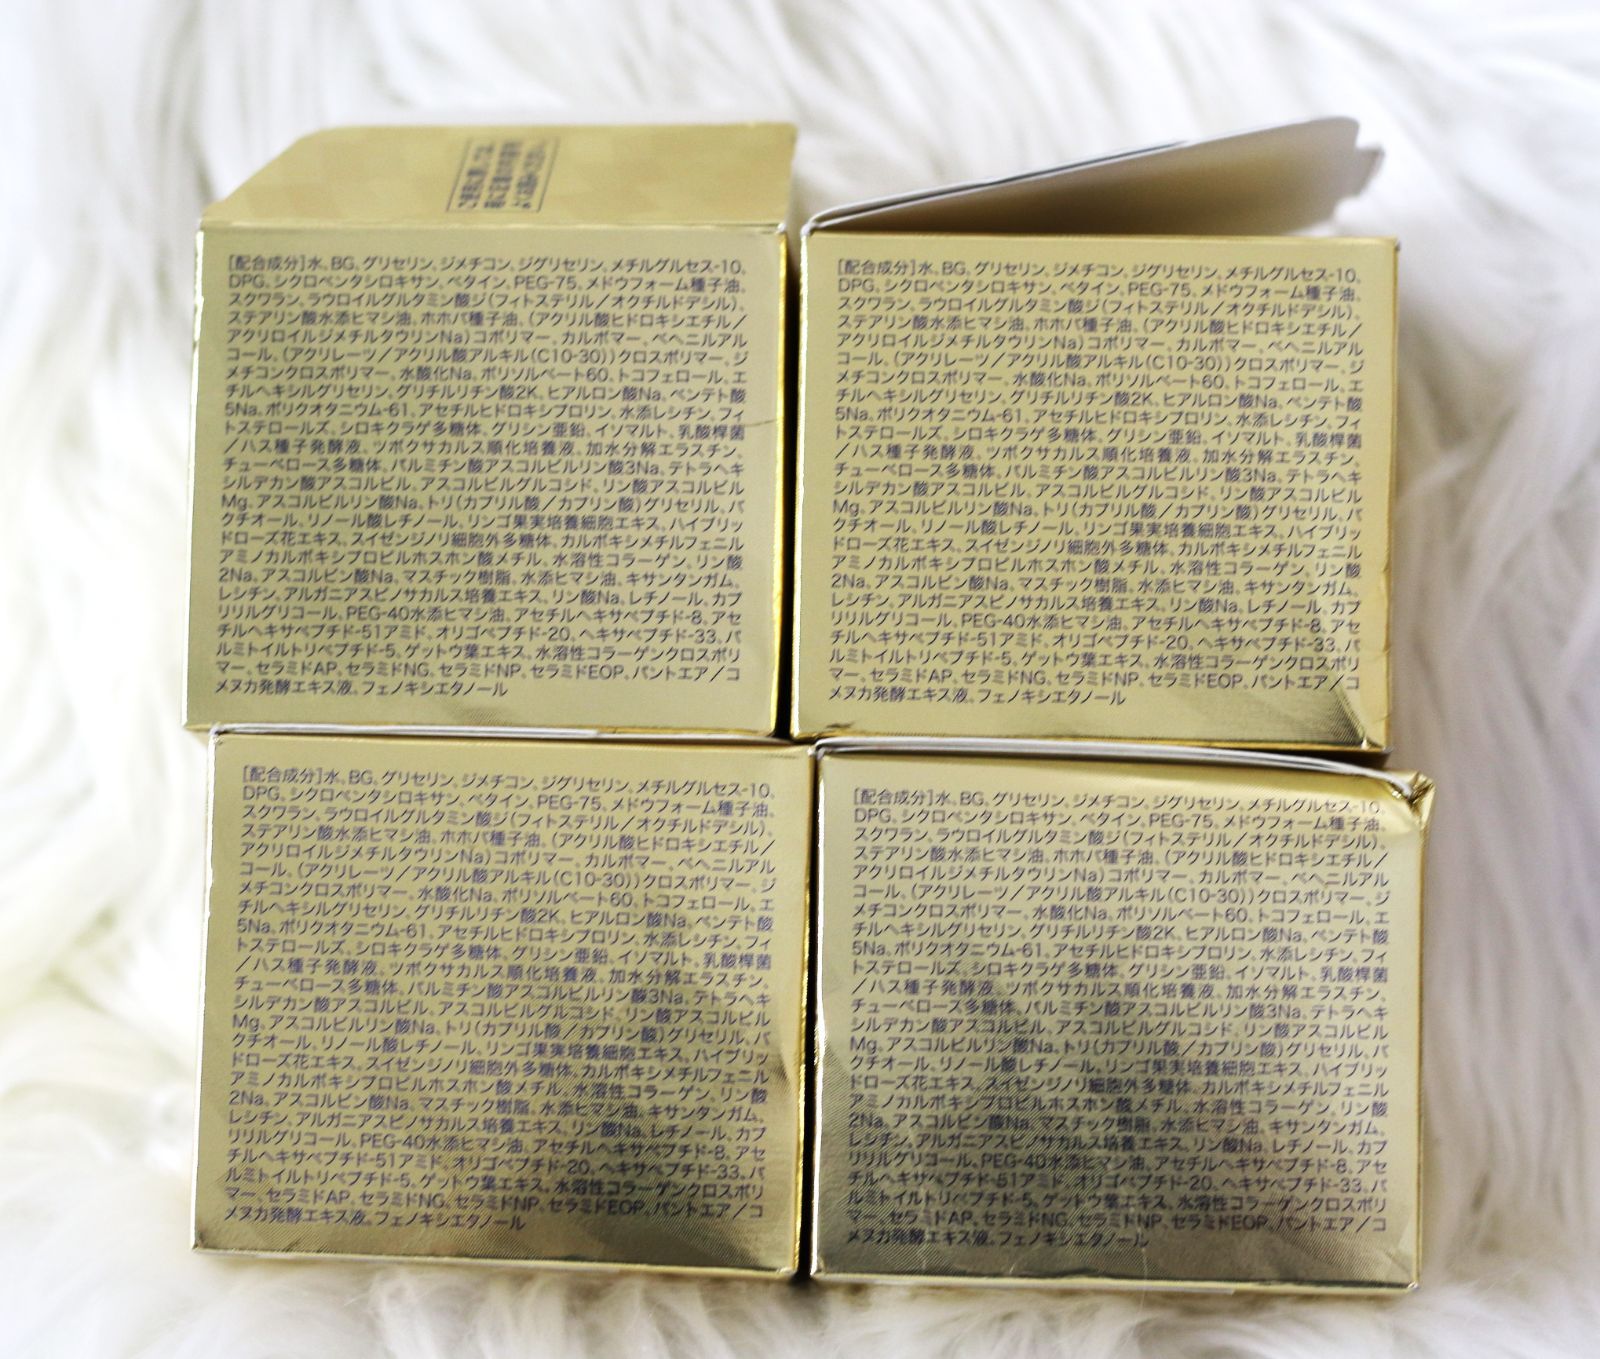 [配合成分]水、BG、グリセリン、ジメチコン、ジグリセリン、メチルグルセス-10、
DPG、シクロペンタシロキサン、ベタイン、PEG-75、メドウフォーム種子油、
スクワラン、ラウロイルグルタミン酸ジ(フィトステリル/オクチルドデシル)、
ステアリン酸水添ヒマシ油、ホホバ種子油、(アクリル酸ヒドロキシエチル/
アクリロイルジメチルタウリンNa)コポリマー、カルボマー、ベヘニルアル
コール、(アクリレーツ/アクリル酸アルキル(C10-30))クロスポリマー、ジ
メチコンクロスポリマー、水酸化Na、ポリソルベート60、トコフェロール、エ
チルヘキシルグリセリン、グリチルリチン酸2K、ヒアルロン酸Na、ペンテト酸
5Na、ポリクオタニウム-61、アセチルヒドロキシプロリン、水添レシチン、フィ
トステロールズ、シロキクラゲ多糖体、グリシン亜鉛、イソマルト、乳酸桿菌
/ハス種子発酵液、ツボクサカルス順化培養液、加水分解エラスチン、
チューベロース多糖体、パルミチン酸アスコルビルリン酸3Na、テトラヘキ
シルデカン酸アスコルビル、アスコルビルグルコシド、リン酸アスコルビル
Mg、アスコルビルリン酸Na、トリ(カプリル酸/カプリン酸)グリセリル、バ
クチオール、リノール酸レチノール、リンゴ果実培養細胞エキス、ハイブリッ
ドローズ花エキス、スイゼンジノリ細胞外多糖体、カルボキシメチルフェニル
アミノカルボキシプロピルホスホン酸メチル、水溶性コラーゲン、リン酸
2Na、アスコルビン酸Na、マスチック樹脂、水添ヒマシ油、キサンタンガム、
レシチン、アルガニアスピノサカルス培養エキス、リン酸Na、レチノール、カプ
リリルグリコール、PEG-40水添ヒマシ油、アセチルヘキサペプチド-8、アセ
チルヘキサペプチド-51アミド、オリゴペプチド-20、ヘキサペプチド-33、パ
ルミトイルトリペプチド-5、ゲットウ葉エキス、水溶性コラーゲンクロスポリ
マー、セラミドAP、セラミドNG、セラミドNP、セラミドEOP、パントエア/コ
メヌカ発酵エキス液、フェノキシエタノール
[配合成分]水、BG、グリセリン、ジメチコン、ジグリセリン、メチルグルセス-10、
DPG、シクロペンタシロキサン、ベタイン、PEG-75、メドウフォーム種子油、
スクワラン、ラウロイルグルタミン酸ジ(フィトステリル/オクチルドデシル)、
ステアリン酸水添ヒマシ油、ホホバ種子油、(アクリル酸ヒドロキシエチル/
アクリロイルジメチルタウリンNa)コポリマー、カルボマー、ベヘニルアル
コール、(アクリレーツ/アクリル酸アルキル(C10-30))クロスポリマー、ジ
メチコンクロスポリマー、水酸化Na、ポリソルベート60、トコフェロール、エ
チルヘキシルグリセリン、グリチルリチン酸2K、ヒアルロン酸Na、ペンテト酸
5Na、ポリクオタニウム-61、アセチルヒドロキシプロリン、水添レシチン、フィ
トステロールズ、シロキクラゲ多糖体、グリシン亜鉛、イソマルト、乳酸桿菌
/ハス種子発酵液、ツボクサカルス順化培養液、加水分解エラスチン、
チューベロース多糖体、パルミチン酸アスコルビルリン酸3Na、テトラヘキ
シルデカン酸アスコルビル、アスコルビルグルコシド、リン酸アスコルビル
Mg、アスコルビルリン酸Na、トリ(カプリル酸/カプリン酸)グリセリル、バ
クチオール、リノール酸レチノール、リンゴ果実培養細胞エキス、ハイブリッ
ドローズ花エキス、スイゼンジノリ細胞外多糖体、カルボキシメチルフェニル
アミノカルボキシプロピルホスホン酸メチル、水溶性コラーゲン、リン酸
2Na、アスコルビン酸Na、マスチック樹脂、水添ヒマシ油、キサンタンガム、
レシチン、アルガニアスピノサカルス培養エキス、リン酸Na、レチノール、カプ
リリルグリコール、PEG-40水添ヒマシ油、アセチルヘキサペプチド-8、アセ
チルヘキサペプチド-51アミド、オリゴペプチド-20、ヘキサペプチド-33、パ
ルミトイルトリペプチド-5、ゲットウ葉エキス、水溶性コラーゲンクロスポリ
マー、セラミドAP、セラミドNG、セラミドNP、セラミドEOP、パントエア/コ
メヌカ発酵エキス液、フェノキシエタノール
[配合成分]水、BG、グリセリン、ジメチコン、ジグリセリン、メチルグルセス-10、
DPG、シクロペンタシロキサン、ベタイン、PEG-75、メドウフォーム種子油、
スクワラン、ラウロイルグルタミン酸ジ(フィトステリル/オクチルドデシル)、
ステアリン酸水添ヒマシ油、ホホバ種子油、(アクリル酸ヒドロキシエチル/
アクリロイルジメチルタウリンNa)コポリマー、カルボマー、ベヘニルアル
コール、(アクリレーツ/アクリル酸アルキル(C10-30))クロスポリマー、ジ
メチコンクロスポリマー、水酸化Na、ポリソルベート60、トコフェロール、エ
チルヘキシルグリセリン、グリチルリチン酸2K、ヒアルロン酸Na、ペンテト酸
5Na、ポリクオタニウム-61、アセチルヒドロキシプロリン、水添レシチン、フィ
トステロールズ、シロキクラゲ多糖体、グリシン亜鉛、イソマルト、乳酸桿菌
/ハス種子発酵液、ツボクサカルス順化培養液、加水分解エラスチン、
チューベロース多糖体、パルミチン酸アスコルビルリン酸3Na、テトラヘキ
シルデカン酸アスコルビル、アスコルビルグルコシド、リン酸アスコルビル
Mg、アスコルビルリン酸Na、トリ(カプリル酸/カプリン酸)グリセリル、バ
クチオール、リノール酸レチノール、リンゴ果実培養細胞エキス、ハイブリッ
ドローズ花エキス、スイゼンジノリ細胞外多糖体、カルボキシメチルフェニル
アミノカルボキシプロピルホスホン酸メチル、水溶性コラーゲン、リン酸
2Na、アスコルビン酸Na、マスチック樹脂、水添ヒマシ油、キサンタンガム、
レシチン、アルガニアスピノサカルス培養エキス、リン酸Na、レチノール、カプ
リリルグリコール、PEG-40水添ヒマシ油、アセチルヘキサペプチド-8、アセ
チルヘキサペプチド-51アミド、オリゴペプチド-20、ヘキサペプチド-33、パ
ルミトイルトリペプチド-5、ゲットウ葉エキス、水溶性コラーゲンクロスポリ
マー、セラミドAP、セラミドNG、セラミドNP、セラミドEOP、パントエア/コ
メヌカ発酵エキス液、フェノキシエタノール
[配合成分]水、BG、グリセリン、ジメチコン、ジグリセリン、メチルグルセス-10、
DPG、シクロペンタシロキサン、ベタイン、PEG-75、メドウフォーム種子油、
スクワラン、ラウロイルグルタミン酸ジ(フィトステリル/オクチルドデシル)、
ステアリン酸水添ヒマシ油、ホホバ種子油、(アクリル酸ヒドロキシエチル/
アクリロイルジメチルタウリンNa)コポリマー、カルボマー、ベヘニルアル
コール、(アクリレーツ/アクリル酸アルキル(C10-30))クロスポリマー、ジ
メチコンクロスポリマー、水酸化Na、ポリソルベート60、トコフェロール、エ
チルヘキシルグリセリン、グリチルリチン酸2K、ヒアルロン酸Na、ペンテト酸
5Na、ポリクオタニウム-61、アセチルヒドロキシプロリン、水添レシチン、フィ
トステロールズ、シロキクラゲ多糖体、グリシン亜鉛、イソマルト、乳酸桿菌
/ハス種子発酵液、ツボクサカルス順化培養液、加水分解エラスチン、
チューベロース多糖体、パルミチン酸アスコルビルリン酸3Na、テトラヘキ
シルデカン酸アスコルビル、アスコルビルグルコシド、リン酸アスコルビル
Mg、アスコルビルリン酸Na、トリ(カプリル酸/カプリン酸)グリセリル、バ
クチオール、リノール酸レチノール、リンゴ果実培養細胞エキス、ハイブリッ
ドローズ花エキス、スイゼンジノリ細胞外多糖体、カルボキシメチルフェニル
アミノカルボキシプロピルホスホン酸メチル、水溶性コラーゲン、リン酸
2Na、アスコルビン酸Na、マスチック樹脂、水添ヒマシ油、キサンタンガム、
レシチン、アルガニアスピノサカルス培養エキス、リン酸Na、レチノール、カプ
リリルグリコール、PEG-40水添ヒマシ油、アセチルヘキサペプチド-8、アセ
チルヘキサペプチド-51アミド、オリゴペプチド-20、ヘキサペプチド-33、パ
ルミトイルトリペプチド-5、ゲットウ葉エキス、水溶性コラーゲンクロスポリ
マー、セラミドAP、セラミドNG、セラミドNP、セラミドEOP、パントエア/コ
メヌカ発酵エキス液、フェノキシエタノール